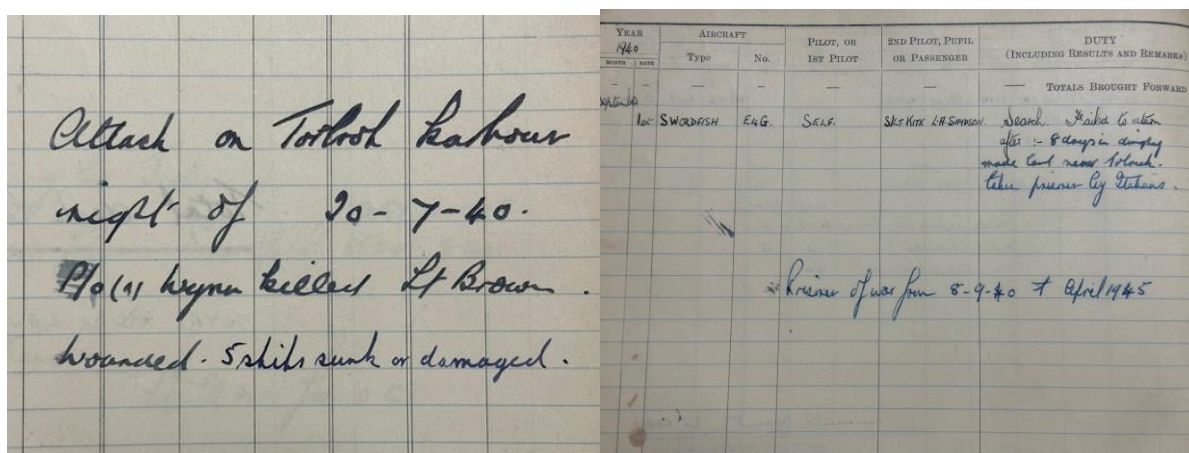 Attack on Tobruk harbour
night of 20-7-40.
P/O (A) Wynn killed Lt Brown.
wounded. 5 ships sunk or damaged.
YEAR
1940
AIRCRAFT
PILOT, OR
1ST PILOT
2ND PILOT, PUPIL
OR PASSENGER
DUTY
(INCLUDING RESULTS AND REMARKS)
MONTH DATE
Type No.
— — — — — — TOTALS BROUGHT FORWARD
September
1st SWORDFISH E4G. SELF. S/LT KITE L.A. SIMPSON. Search. Failed to return
after :- 8 days in dinghy
made land near Tobruk.
taken prisoner by Italians.
Prisoner of war from 8-9-40 April 1945